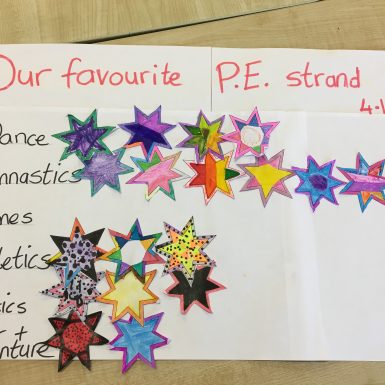 Our favourite P.E. strand
4.
ance
mnastics
mes
letics
ics
+
nture